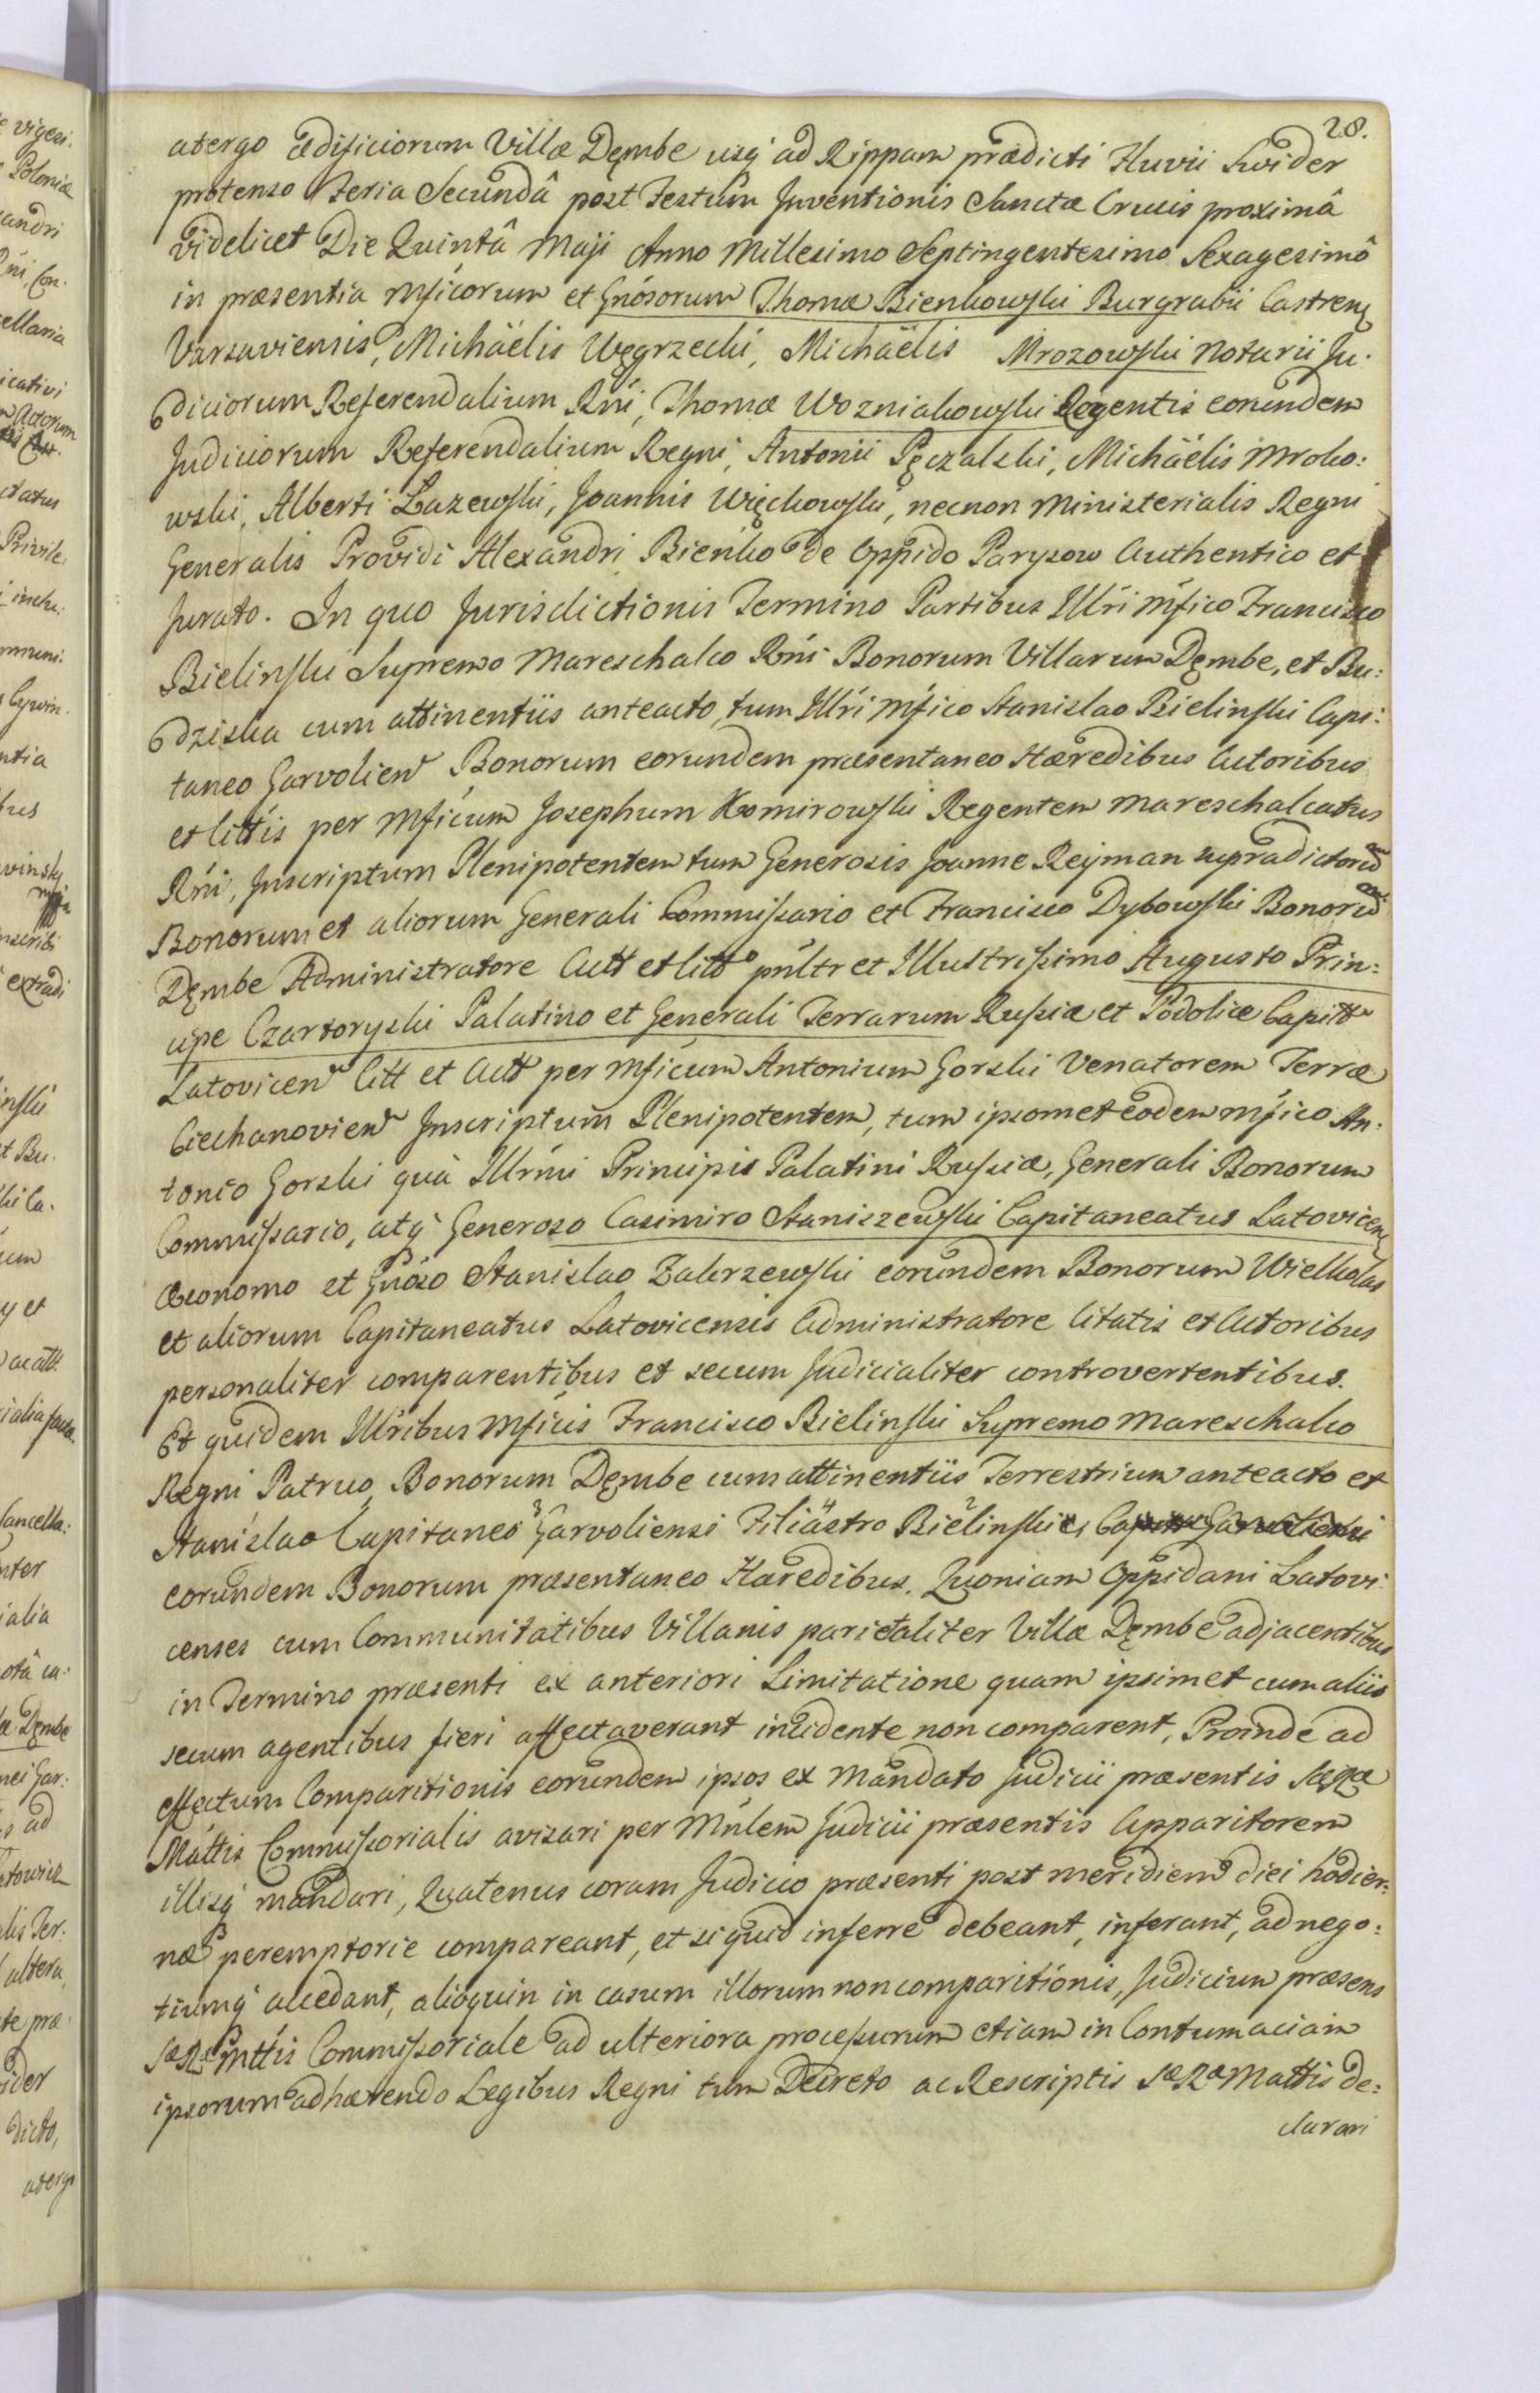 28.
atergo ædificiorum Villæ Dęmbe usq́ ad Rippam prædicti Fluvii Swider
protenso Feria Secundâ post Festum Inventionis Sanctæ Crucis proximâ
videlicet Die Quintâ Maji Anno Millesimo Septingentesimo Sexagesimô
in præsentia Mficorum et Gnósorum Thomæ Bienkowski Burgrabii Castren̄
Varsaviensis, Michäelis Węgrzecki, Michäelis Mrozowski Notarii Ju:
diciorum Referendalium Rńi, Thomæ Wozniakowski Regentis eorundem
Judiciorum Referendalium Regni, Antonii Pęczalski, Michäelis Mroko:
wski, Alberti Lazewski, Joannis Więckowski, necnon Ministerialis Regni
Generalis Providi Alexandri Bieńko de Oppido Parysow Authentico et
Jurato. In quo Jurisdictionis Termino Partibus Illri Mfico Francisco
Bielinski Supremo Mareschalco Rńi Bonorum Villarum Dęmbe, et Bu:
dziska cum attinentiis anteacto, tum Illri Mfico Stanislao Bielinski Capi:
taneo Garvolien̄ Bonorum eorundem præsentaneo Hæredibus Actoribus
et Cittis per Mficum Josephum Komirowski Regentem Mareschalcatus
Rńi, Inscriptum Plenipotentem tum Generosis Joanne Rejman supradictorū
Bonorum et aliorum Generali Commissario et Francisco Dybowski Bonorū
Dęmbe Administratore Actt et Citt pnltr et Illustrissimo Augusto Prin:
cipe Czartoryski Palatino et Generali Terrarum Russiæ et Podoliæ Capitt
Latovicen̄ Citt et Actt per Mficum Antonium Gorski Venatorem Terræ
Ciechanovien̄ Inscriptum Plenipotentem, tum ipsomet eodem Mfico An:
tonio Gorski quà Illrmi Principis Palatini Russiæ, Generali Bonorum
Commissario, atq́ Generoso Casimiro Staniszewski Capitaneatus Latovicen̄
Œconomo et Gnóso Stanislao Zakrzewski eorundem Bonorum Wielkolas
et aliorum Capitaneatus Latovicensis Administratore Citatis et Actoribus
personaliter comparentibus et secum Judicialiter controvertentibus.
Et quidem Illribus Mficis Francisco Bielinski Supremo Mareschalco
Regni Patruo, Bonorum Dęmbe cum attinentiis Terrestrium anteacto et
Stanislao Capitaneo Garvoliensi Filiastro Bielinski
eorundem Bonorum præsentaneo Hæredibus. Quoniam Oppidani Latovi:
censes cum Communitatibus Villanis parietaliter Villæ Dęmbe adjacentibus
in Termino præsenti ex anteriori Limitatione quam ipsimet cum aliis
secum agentibus fieri affectaverant incidente non comparent, Proinde ad
effectum Comparitionis eorundem ipsos ex Mandato Judicii præsentis SæRæ
Mattis Commissorialis avisari per Mnlem Judicii præsentis Apparitorem
illisq́ mandari, Quatenus coram Judicio præsenti post meridiem diei hodier:
næ peremptorie compareant, et si quid inferre debeant, inferant, ad nego:
tiumq́ accedant, alioquin in casum illorum non comparitionis, Judicium præsens
SæRæ Mttis Commissoriale ad ulteriora processurum etiam in Contumaciam
ipsorum adhærendo Legibus Regni tum Decreto ac Rescriptis SæRæ Mattis de:
clarari